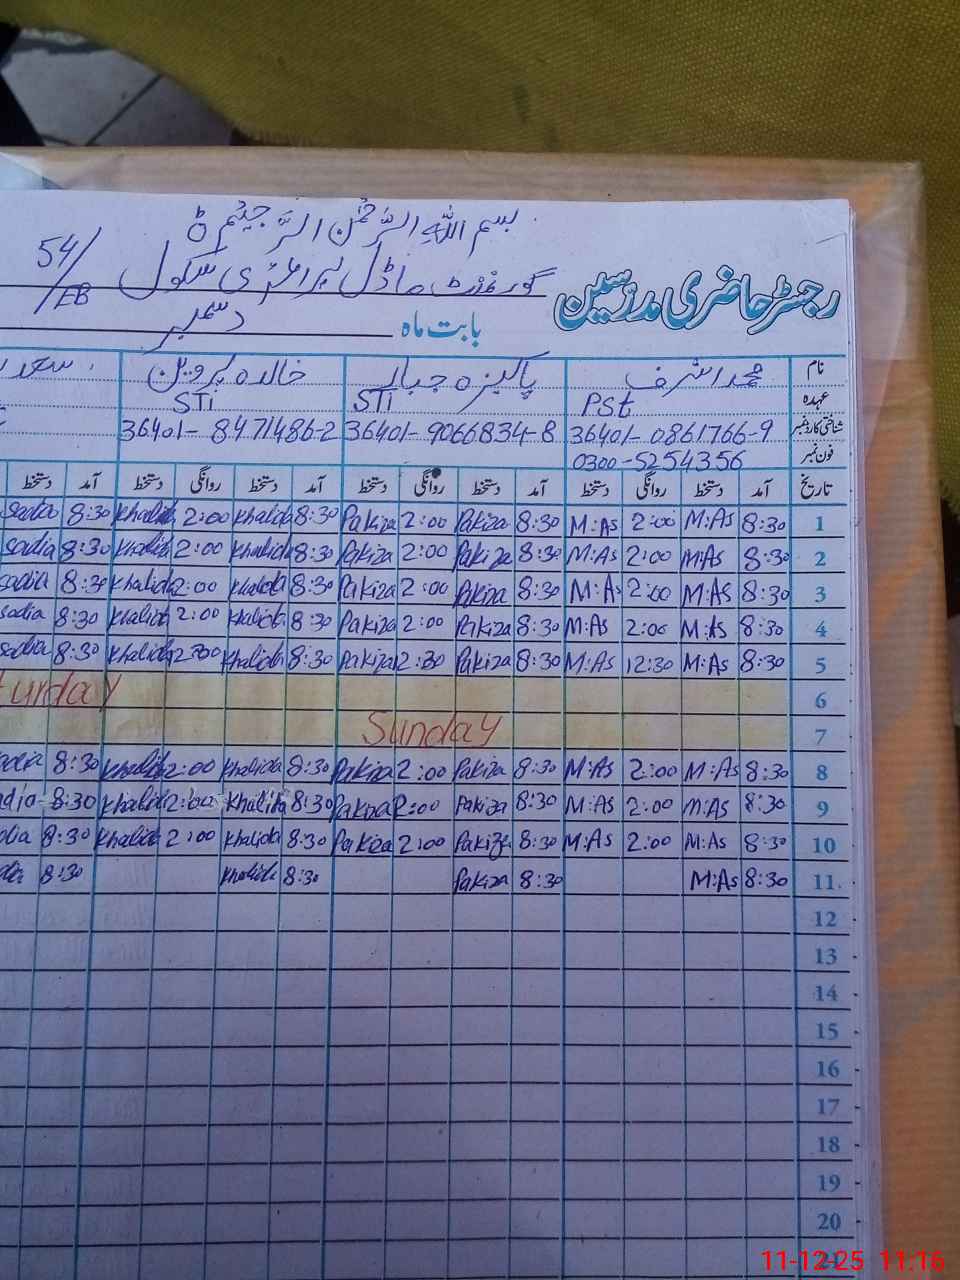 بسم اللہ الرحمٰن الرحیم
گورنمنٹ ماڈل پرائمری سکول 54/EB
رجسٹر حاضری مدرسین
بابت ماہ دسمبر
نام محمد اشرف پاکیزہ جبار خالدہ پروین
عہدہ PSt STI STI
شناختی کارڈ نمبر 36401-0861766-9 36401-9066834-8 36401-8471486-2
فون نمبر 0300-5254356
تاریخ آمد دستخط روانگی دستخط آمد دستخط روانگی دستخط آمد دستخط روانگی دستخط آمد دستخط
1 8:30 M:As 2:00 M:As 8:30 Pakiza 2:00 Pakiza 8:30 Khalida 2:00 Khalida 8:30 Sadia
2 8:30 M:As 2:00 M:As 8:30 Pakiza 2:00 Pakiza 8:30 Khalida 2:00 Khalida 8:30 Sadia
3 8:30 M:As 2:00 M:As 8:30 Pakiza 2:00 Pakiza 8:30 Khalida 2:00 Khalida 8:30 Sadia
4 8:30 M:As 2:00 M:As 8:30 Pakiza 2:00 Pakiza 8:30 Khalida 2:00 Khalida 8:30 Sadia
5 8:30 M:As 12:30 M:As 8:30 Pakiza 12:30 Pakiza 8:30 Khalida Khalida 8:30 Sadia
6 turday
7 Sunday
8 8:30 M:As 2:00 M:As 8:30 Pakiza 2:00 Pakiza 8:30 Khalida 2:00 Khalida 8:30 adia
9 8:30 M:As 2:00 M:As 8:30 Pakiza 2:00 Pakiza 8:30 Khalida 2:00 Khalida 8:30 adia
10 8:30 M:As 2:00 M:As 8:30 Pakiza 2:00 Pakiza 8:30 Khalida 2:00 Khalida 8:30 dia
11 8:30 M:As 8:30 Pakiza 8:30 Khalida 8:30 dia
12
13
14
15
16
17
18
19
20
21
11-12-25 11:16